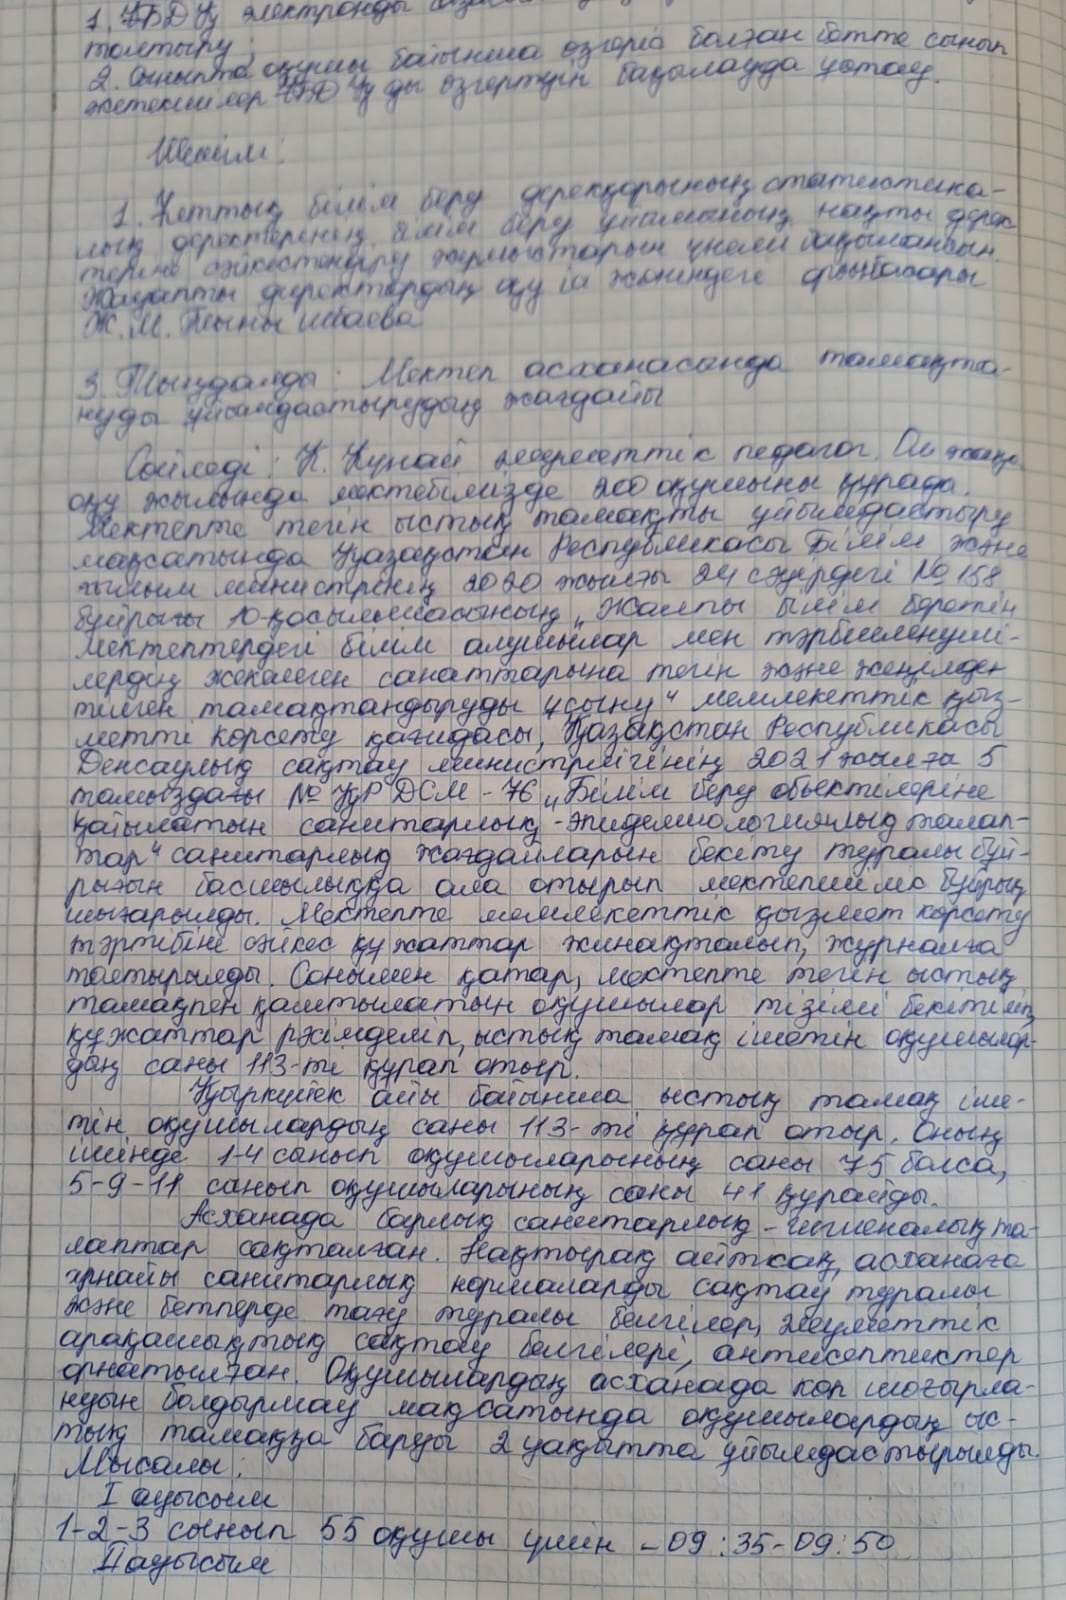 1. ҰБДҚ электронды
толтыру;
2. Сыныпта оқушы бойынша өзгеріс болған бетте сынып
жетекшілер ҰБДҚ ды өзгертуін бақылауда ұстау.
Шешім:
1. Ұлттық білім беру дерекқорының статистика-
лық деректерінің білім беру ұйымының нақты дерек
теріне сәйкестендіру жұмыстарын үнемі бақылансын.
Жауапты директордың оқу ісі жөніндегі орынбасары
Ж.М. Тынышбаева
3. Тыңдалды: Мектеп асханасында тамақта-
нуды ұйымдастырудың жағдайы
Сөйледі: К. Күнай әлеуметтік педагог. Ол жаңа
оқу жылында мектебімізде 200 оқушыны құрады.
Мектепте тегін ыстық тамақты ұйымдастыру
мақсатында Қазақстан Республикасы Білім және
ғылым министрінің 2020 жылғы 24 сәуірдегі № 158
бұйрығы 10-қосымшасының „Жалпы білім беретін
мектептердегі білім алушылар мен тәрбиеленуші-
лердің жекелеген санаттарына тегін және жеңілдет
тілген тамақтандыруды ұсыну" мемлекеттік қыз-
метті көрсету қағидасы, Қазақстан Республикасы
Денсаулық сақтау министрлігінің 2021 жылға 5
тамыздағы № ҚР ДСМ-76 „Білім беру объектілеріне
қойылатын санитарлық-эпидемиологиялық талап-
тар" санитарлық жағдайларын бекіту туралы бұй-
рығын басшылыққа ала отырып мектепішілік бұйрық
шығарылды. Мектепте мемлекеттік қызмет көрсету
тәртібіне сәйкес құжаттар жинақталып, журналға
толтырылды. Сонымен қатар, мектепте тегін ыстық
тамақпен қамтылатын оқушылар тізімі бекітіліп,
құжаттар рәсімделіп, ыстық тамақ ішетін оқушылар-
дың саны 113-ті құрап отыр.
Қыркүйек айы бойынша ыстық тамақ іше-
тін оқушылардың саны 113-ті құрап отыр. Оның
ішінде 1-4 сынып оқушыларының саны 75 болса,
5-9-11 сынып оқушыларының саны 41 құрайды.
Асханада барлық санитарлық-гигиеналық та-
лаптар сақталған. Нақтырақ айтсақ, асханаға
арнайы санитарлық нормаларды сақтау туралы
және бетперде тағу туралы белгілер, әлеуметтік
арақашықтық сақтау белгілері, антисептиктер
орнатылған. Оқушылардың асханада көп шоғырла-
нуын болдырмау мақсатында оқушылардың ыс-
тық тамаққа баруы 2 уақытта ұйымдастырылды.
Мысалы:
I ауысым
1-2-3 сынып 55 оқушы үшін – 09:35-09:50
II ауысым